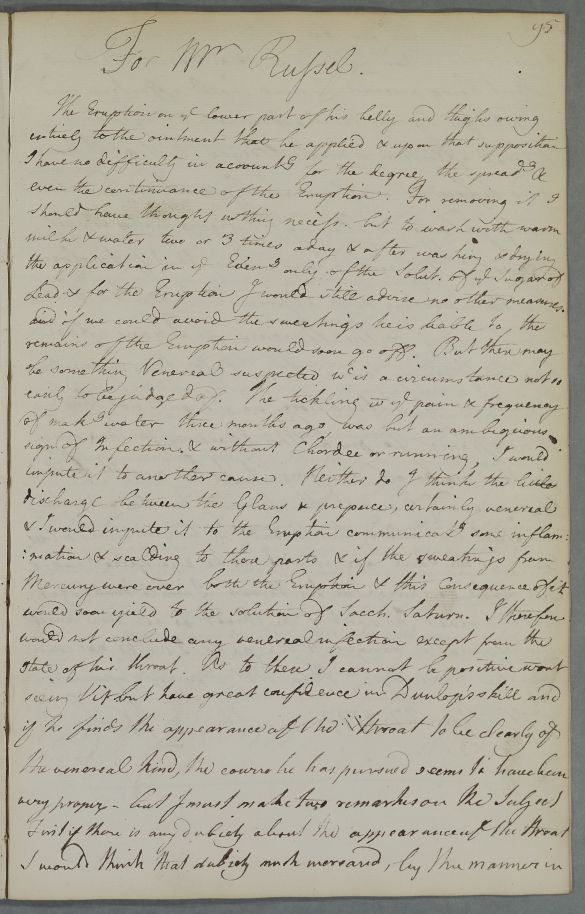 95
For Mr Russel.
The Eruption on ye lower part of his belly and thighs owing
entirely to the ointment that he applied & upon that supposition
I have no difficulty in accountg for the degree, the spreadg &
even the continuance of the Eruption. For removing it I
should have thought nothing necess. but to wash with warm
milk & water two or 3 times a day & after washing & drying
the application in ye Eveng only of the Solut. of ye Sugar of
Lead & for the Eruption I would still advise no other measures.
And if we could avoid the sweatings he is liable to, the
remains of the Eruption would soon go off. But there may
be something Venereal suspected wc is a circumstance not so
easily to be judged of. The tickling wt ye pain & frequency
of makg water three months ago, was but an ambiguous
sign of Infection, & without Chordee or running, I would
impute it to another cause. Neither do I think the little
discharge between the Glans & prepuce, certainly venereal
& I would impute it to the Eruption communicatg some inflam:
:mation & scalding to these parts & if the sweatings from
Mercury were over both the Eruption & this Consequence of it
would soon yield to the solution of Sacch. Saturn. I therefore
would not conclude any venereal infection except from the
state of his throat. As to these I cannot be positive wtout
seeing it but have great confidence in Dunlop's skill and
if he finds the appearance of the throat to be clearly of
the venereal kind, the course he has pursued seems to have been
very proper - but I must make two remarks on the Subject
First if there is any dubiety about the appearance of the throat
I would think that dubiety much increased, by the manner in